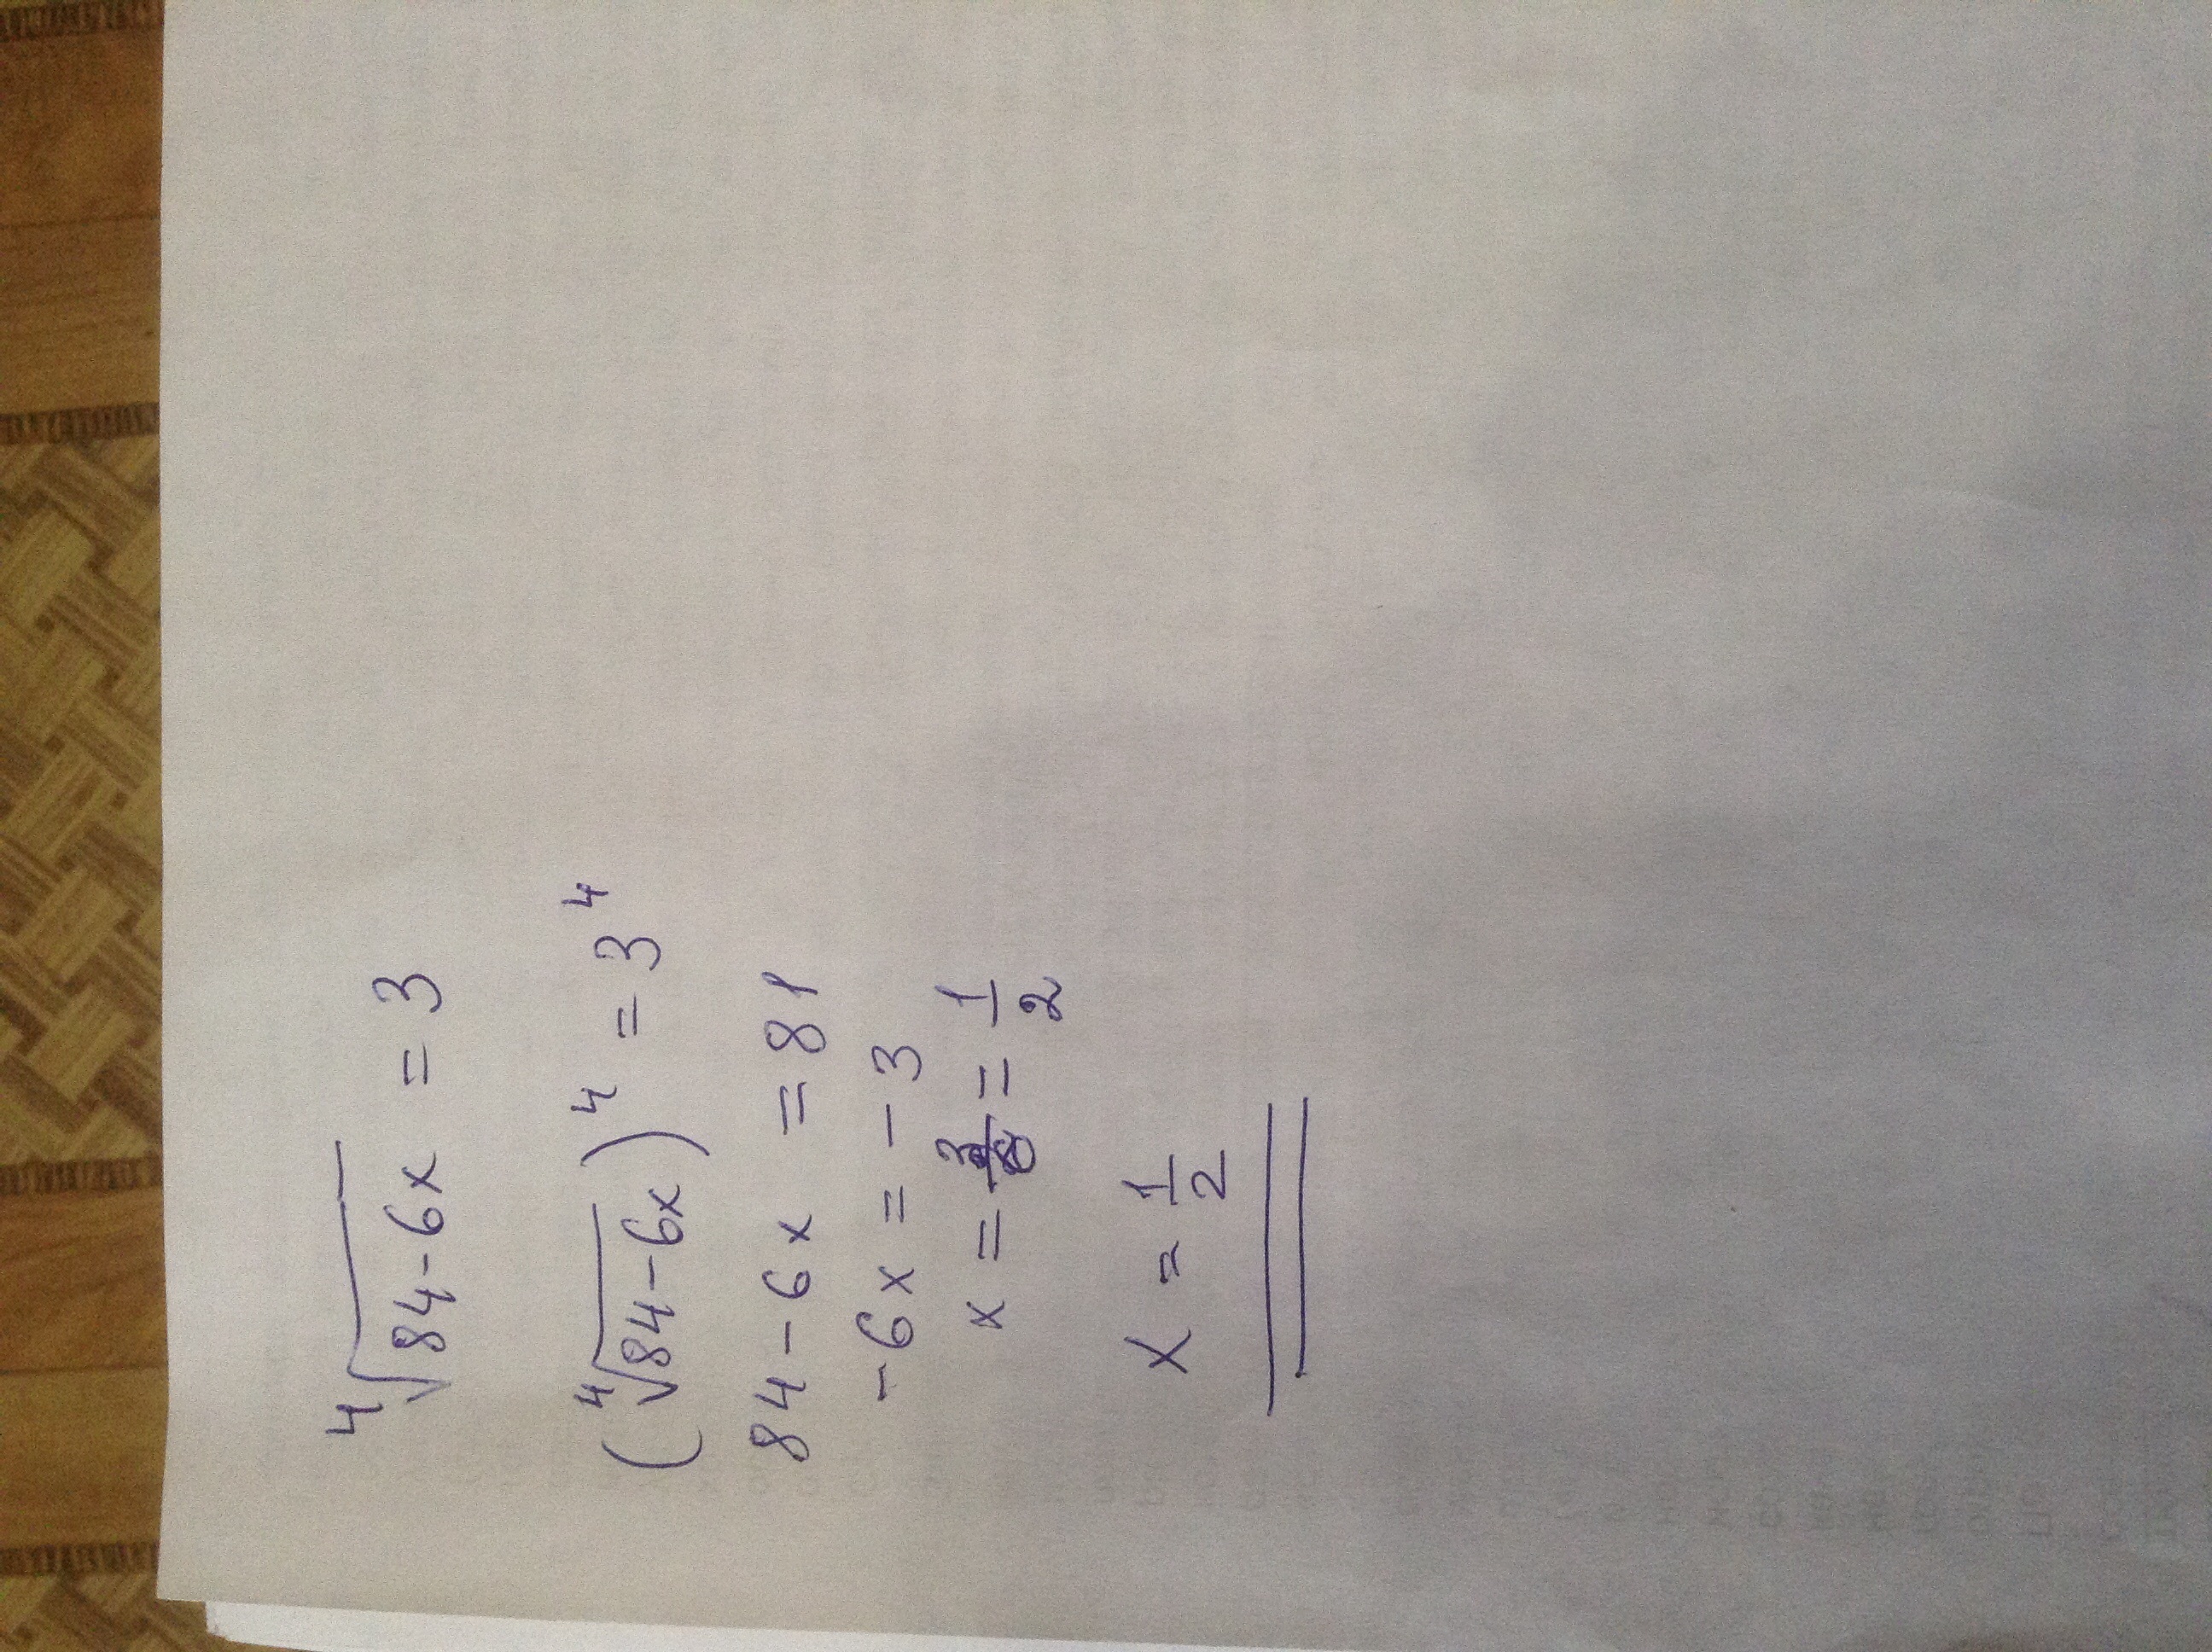 ⁴√(84-6x) = 3
(⁴√(84-6x))⁴ = 3⁴
84-6x = 81
-6x = -3
x = 3/6 = 1/2
x = 1/2